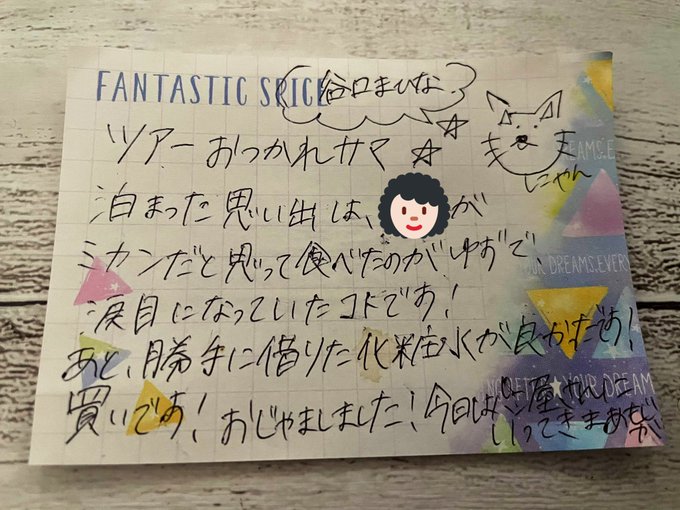 FANTASTIC SPICE
谷口まひな
ツアーおつかれサマ☆☆
にゃん
泊まった思い出は、が
ミカンだと思って食べたのがゆずで、
涙目になっていたコトです!
あと、勝手に借りた化粧水が良かたです!
買いです!おじゃましました!今日はパン屋さんに
いってきまあす
DREAMS.E
YOUR DREAMS.EVERY
YOUR DREAM